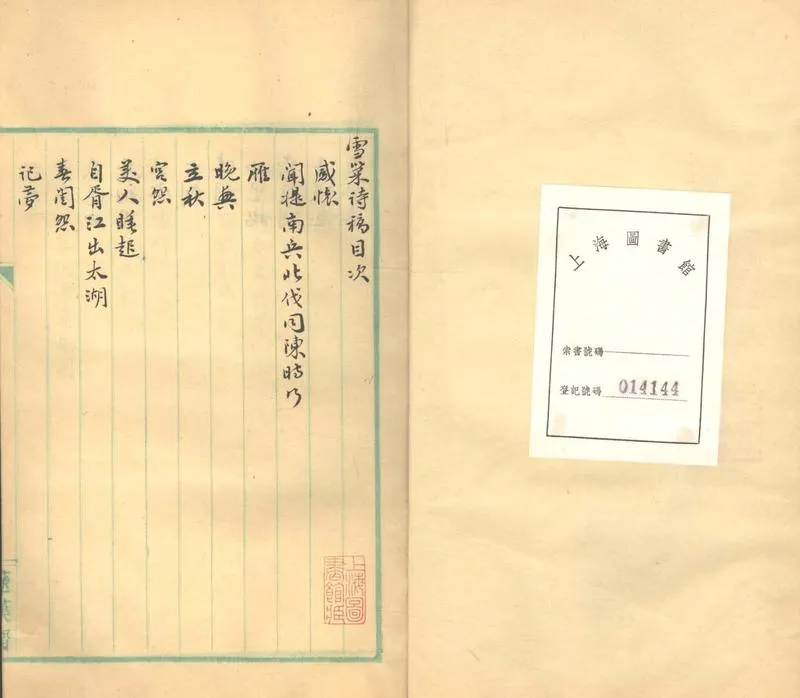 上海圖書館
索書號碼
登記號碼 014144
雪巢诗稿目次
感懷
闻提南兵北伐同陳時乃
雁
晚興
立秋
宮怨
美人睡起
自胥江出太湖
春闺怨
记夢
上海圖書館藏